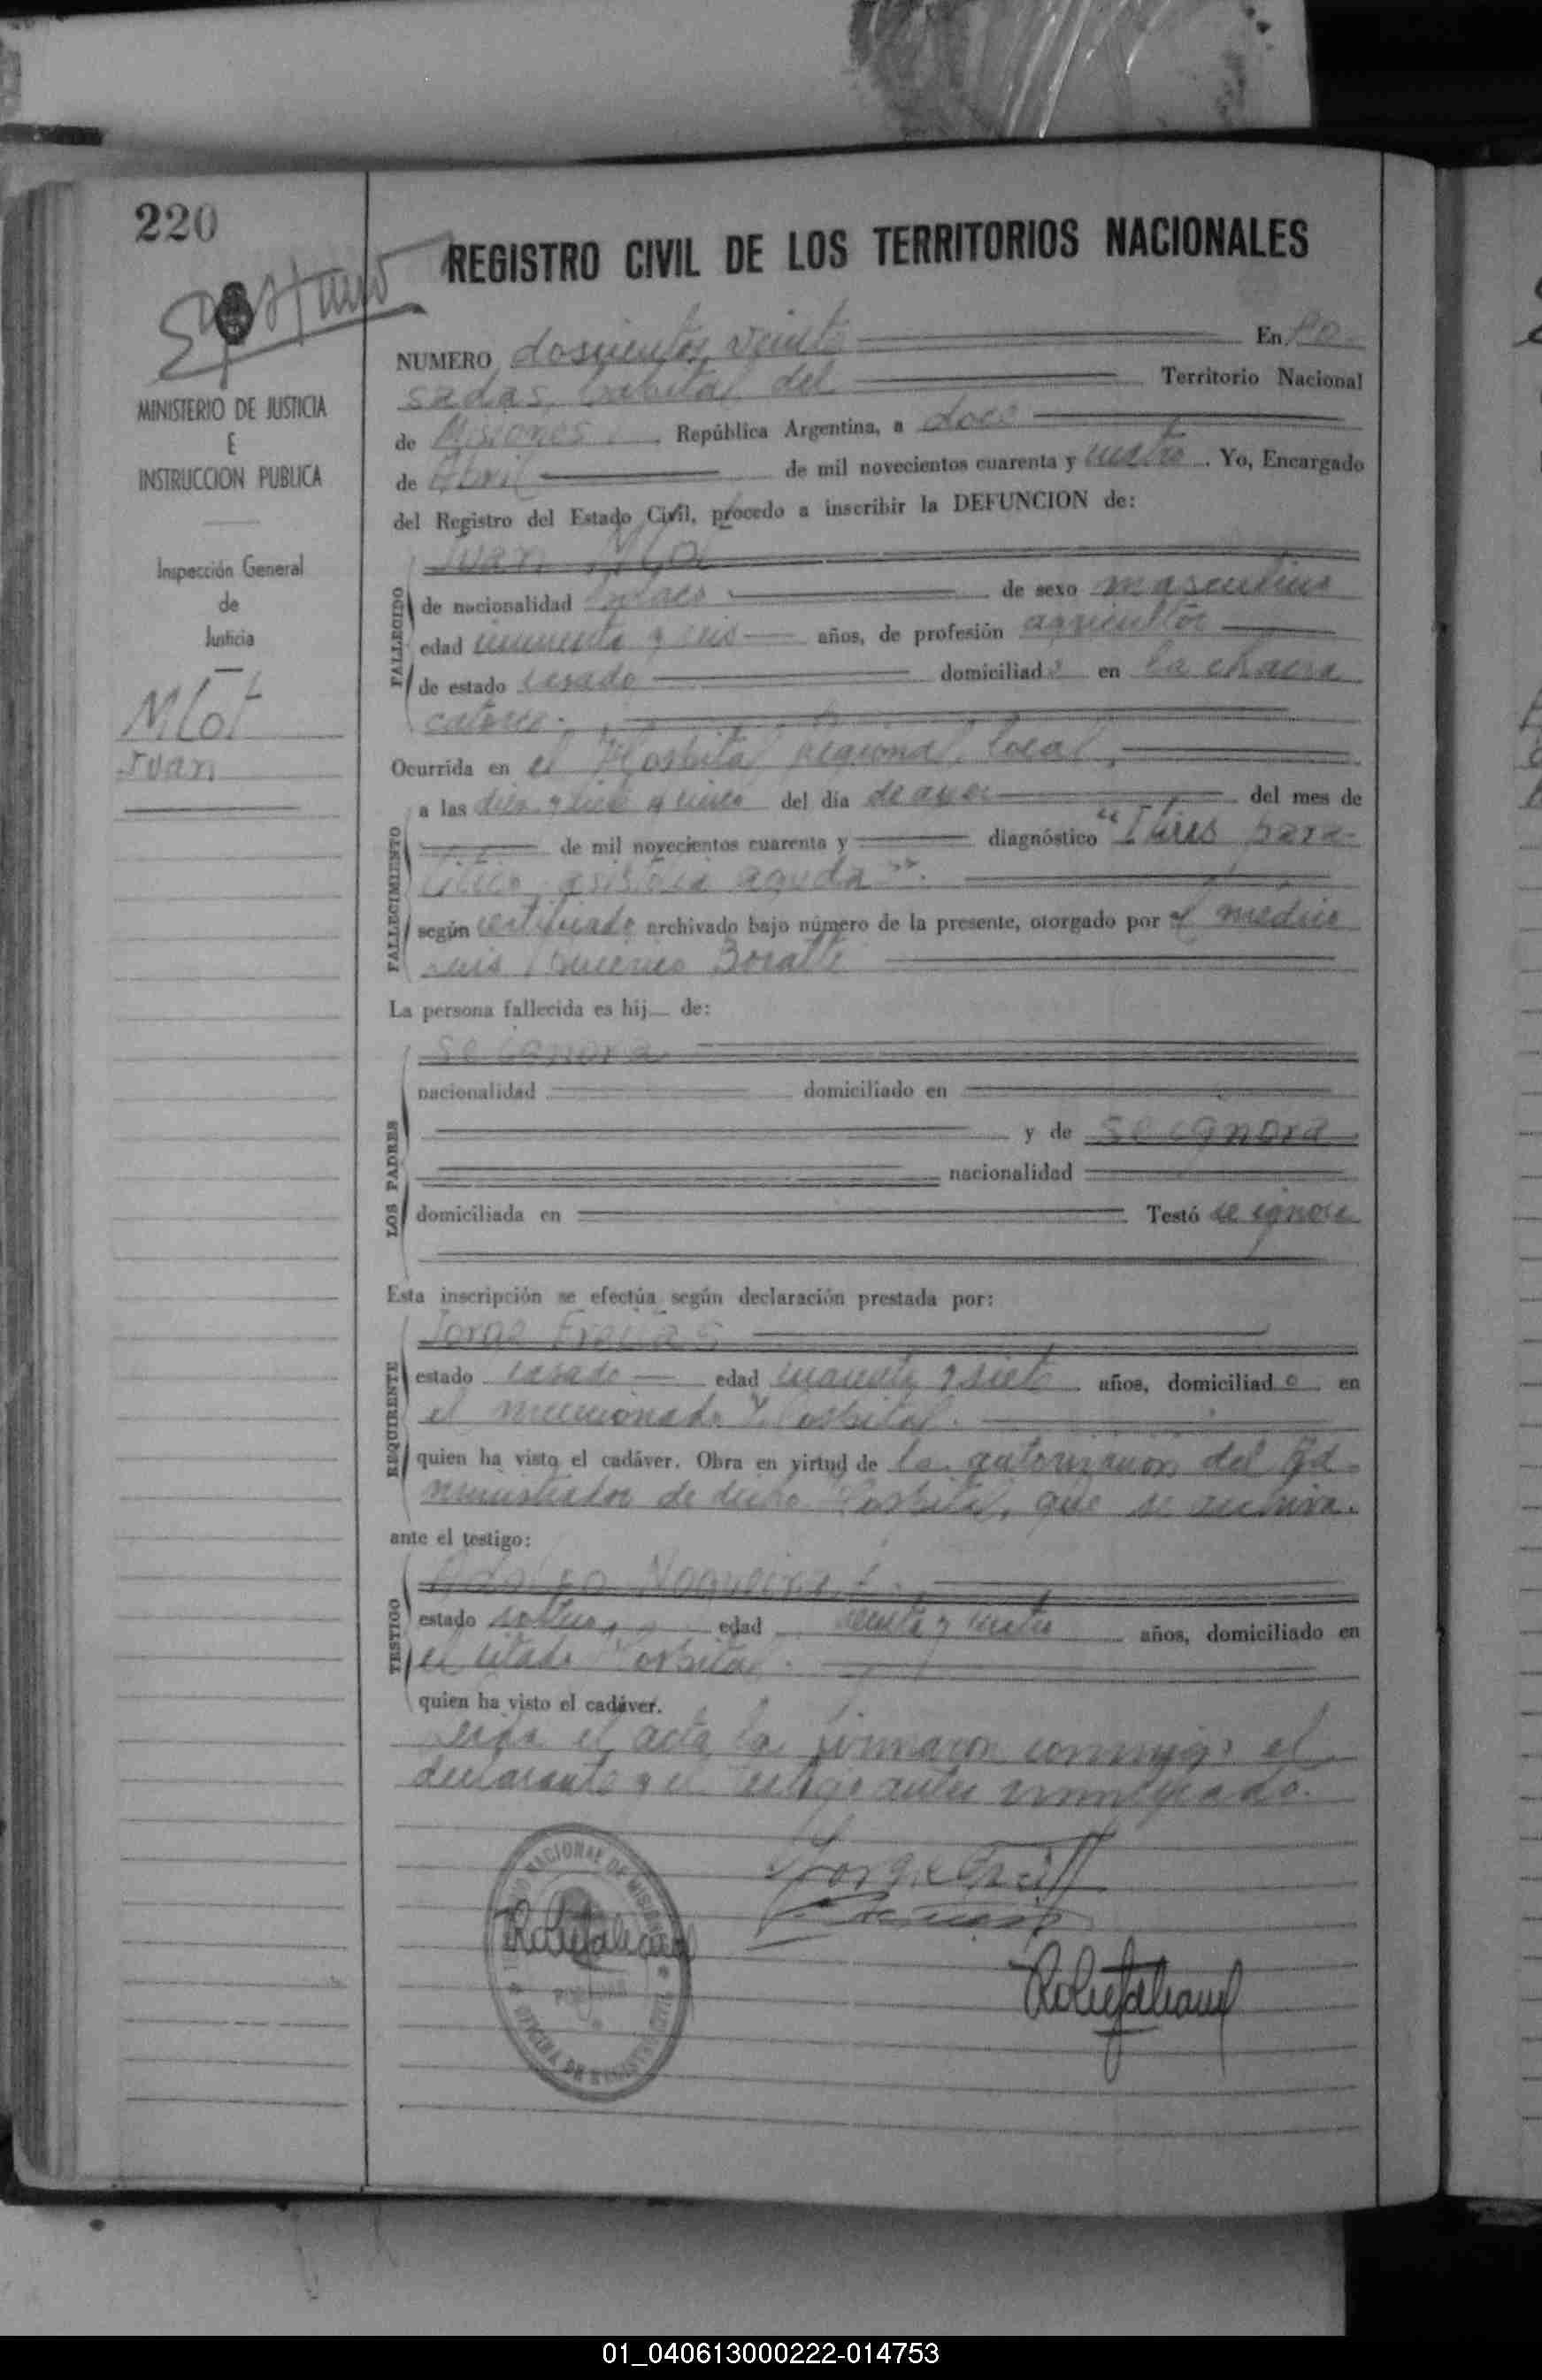 220
REGISTRO CIVIL DE LOS TERRITORIOS NACIONALES
MINISTERIO DE JUSTICIA
E
INSTRUCCION PUBLICA
Inspección General
de
Justicia
Mlot
Juan
NUMERO doscientos veinte En Po-
sadas, Capital del Territorio Nacional
de Misiones República Argentina, a doce
de Abril de mil novecientos cuarenta y cuatro. Yo, Encargado
del Registro del Estado Civil, procedo a inscribir la DEFUNCION de:
FALLECIDO
Juan Mlot
de nacionalidad polaco de sexo masculino
edad cincuenta y seis años, de profesión agricultor
de estado casado domiciliado en la chacra
catorce.
FALLECIMIENTO
Ocurrida en el Hospital Regional local,
a las diez y siete y cinco del día de ayer del mes de
de mil novecientos cuarenta y diagnóstico "
aguda".
según certificado archivado bajo número de la presente, otorgado por el médico
Luis
La persona fallecida es hij de:
LOS PADRES
se ignora
nacionalidad domiciliado en
y de se ignora
nacionalidad
domiciliada en Testó se ignora
Esta inscripción se efectúa según declaración prestada por:
REQUIRENTE
Jorge
estado casado edad cuarenta y siete años, domiciliado en
el mencionado Hospital.
quien ha visto el cadáver. Obra en virtud de la autorización del Ad-
ministrador de dicho Hospital, que se archiva.
ante el testigo:
TESTIGO
Nogueira
estado soltero edad años, domiciliado en
el citado Hospital.
quien ha visto el cadáver.
Leída el acta la firmaron conmigo el
declarante y el testigo antes nombrado.
01_040613000222-014753